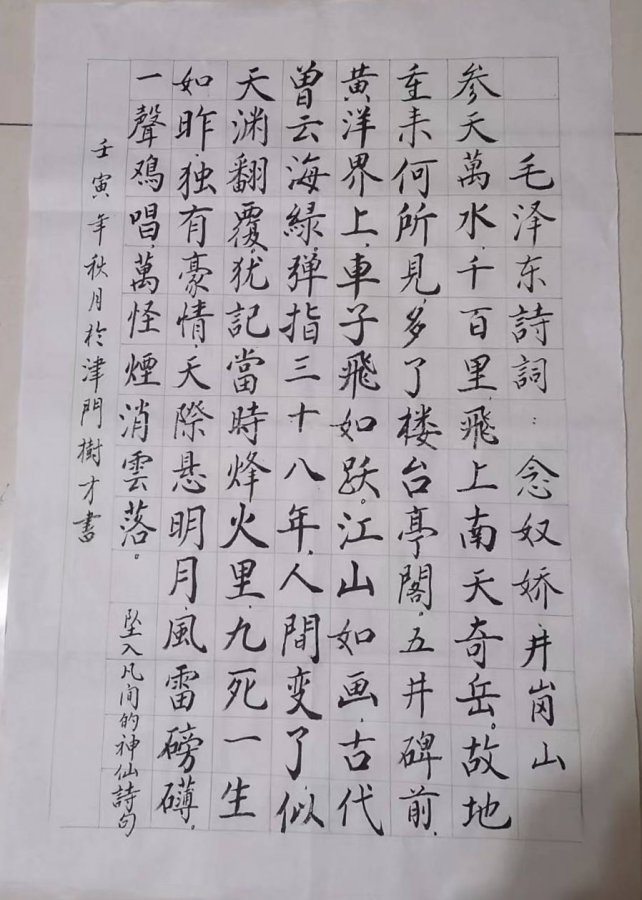 毛泽东詩詞：念奴娇，井崗山
参天萬水，千百里，飛上南天奇岳。故地
重来何所見，多了楼台亭閣。五井碑前，
黄洋界上，車子飛如跃。江山如画，古代
曾云海緑。弹指三十八年，人間变了，似
天渊翻覆。犹記當時烽火里，九死一生
如昨，独有豪情，天際悬明月，風雷磅礴。
一聲鸡唱，萬怪煙消雲落。
坠入凡间的神仙詩句
壬寅年秋月於津門樹才書